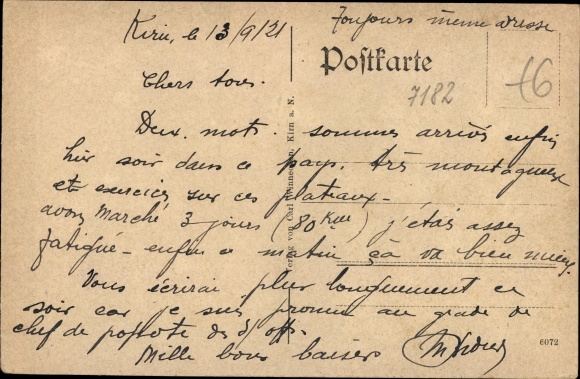 Kirn, le 13/9/21
Toujours meme adresse
Postkarte
7182
16
Chers tous.
Deux mots. sommes arrivés enfin
hier soir dans ce pays. très montagneux
et exercices sur ces plateaux -
avons marché 3 jours (80 Km) j'étais assez
fatigué - enfin ce matin çà va bien mieux
Vous écrirai plus longuement ce
soir car je suis promu au grade de
chef de popote des s/off.
Mille bons baisers
Verlag von Carl Kirn a. N.
6072